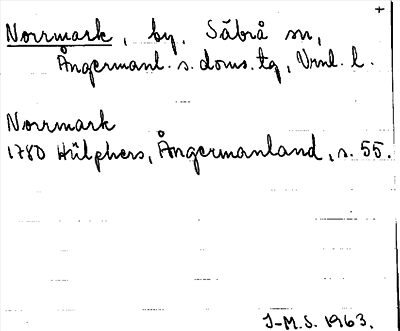 +
Norrmark, by, Säbrå sn,
Ångermanl. s. doms. tg, Vrnl. l.
Norrmark
1780 Hülphers, Ångermanland, s. 55.
J-M.S. 1963.